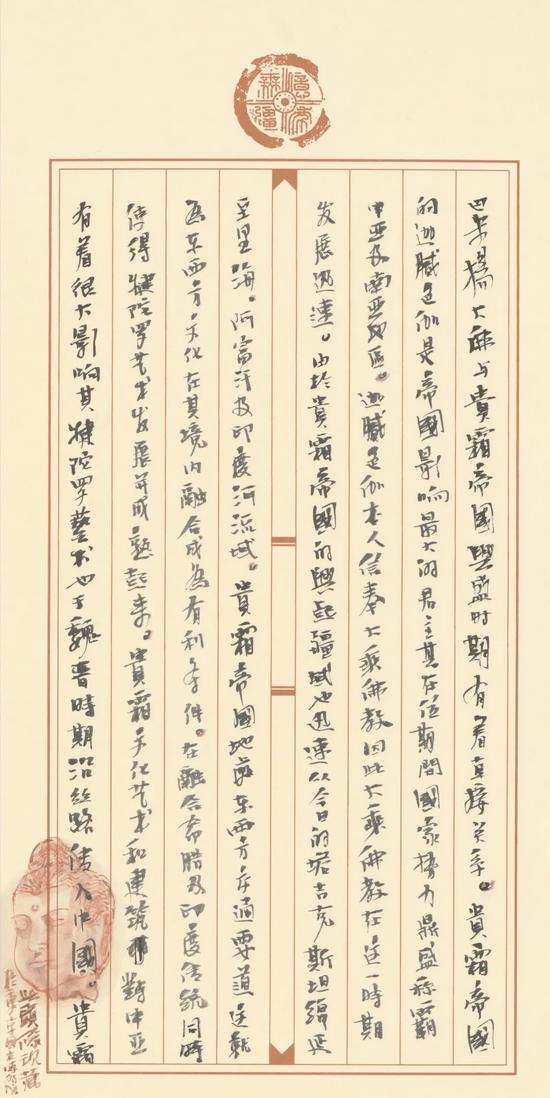 億年無疆
巴米揚大佛与貴霜帝國興盛时期有着直接关系。貴霜帝國
的迦膩色伽是帝國影响最大的君主其在位期間國家势力鼎盛称霸
中亚及南亚地區。迦膩色伽本人信奉大乘佛教因此大乘佛教在这一時期
发展迅速。由於貴霜帝國的興起疆域也迅速从今日的塔吉克斯坦綿延
至里海。阿富汗及印度河流域。貴霜帝國地處东西方交通要道这就
為东西方文化在其境内融合成為有利条件。在融合希腊及印度传统同時
使得犍陀罗艺术发展并成熟起来。貴霜文化艺术和建筑對中亚
有着很大影响其犍陀罗藝术也于魏晋時期沿丝路传入中國。貴霜
此頭像现藏